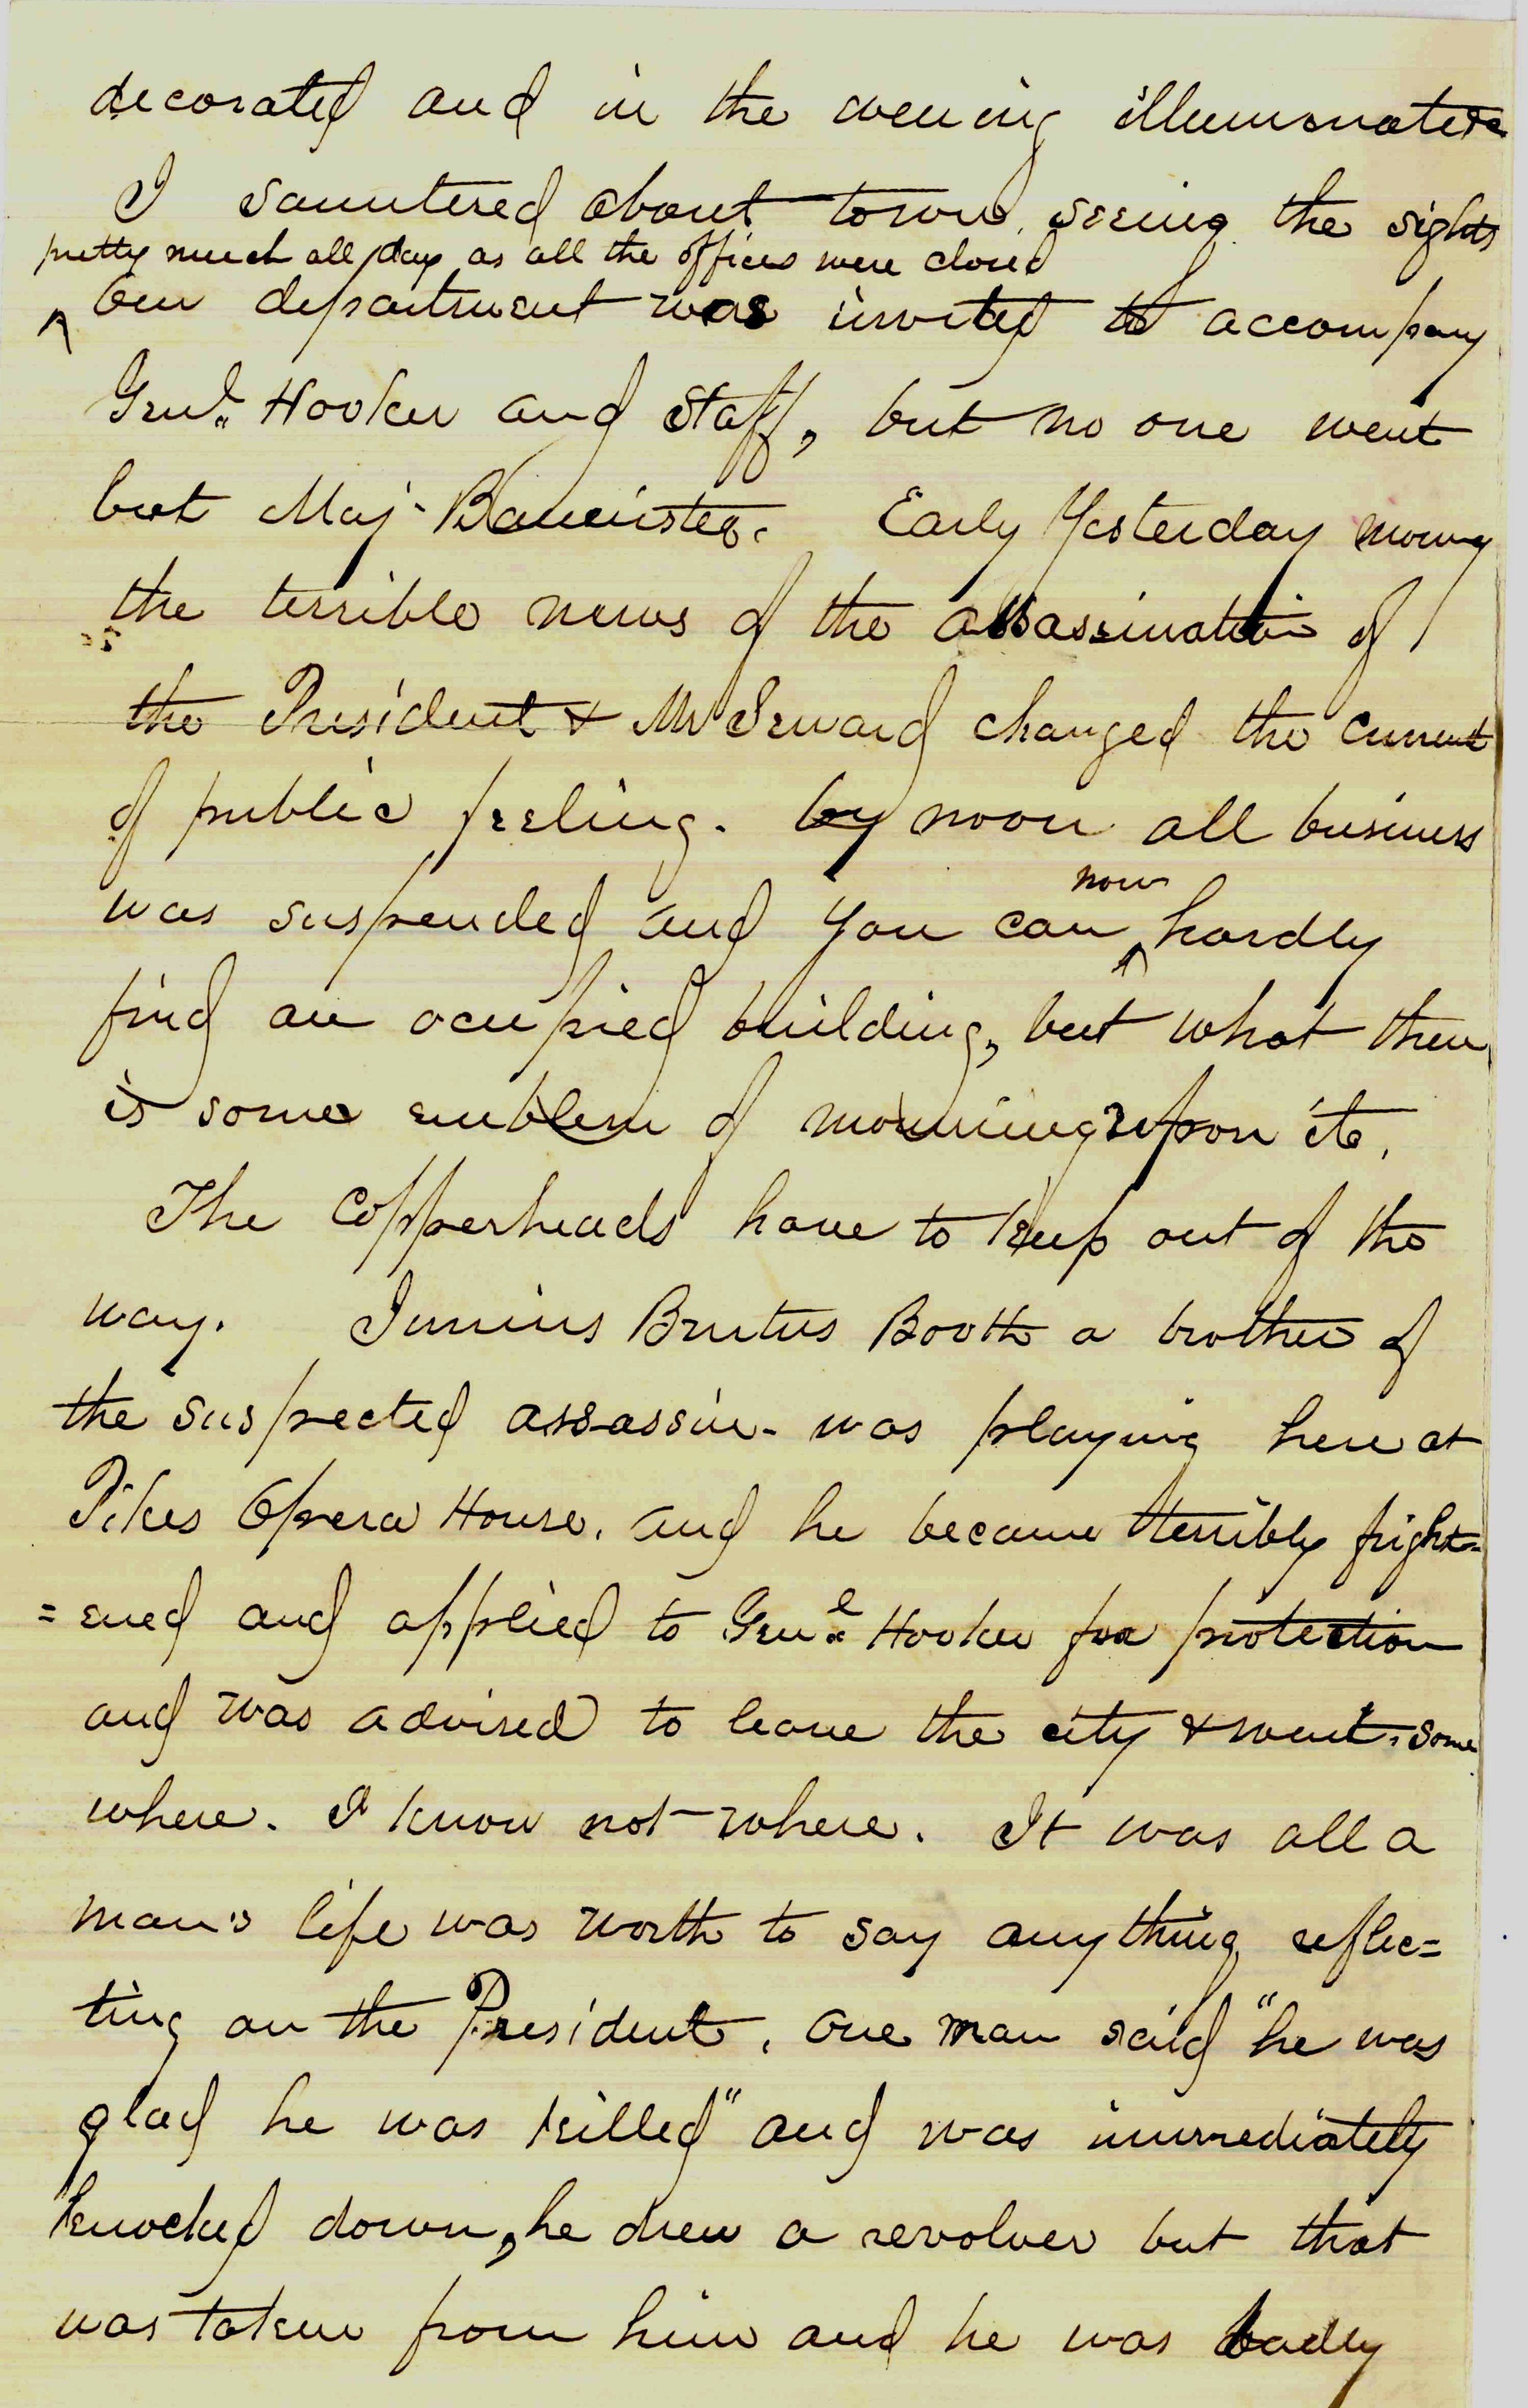 decorated and in the evening illuminated
I sauntered about town, seeing the sights
pretty much all day as all the offices were closed
^ Our department was invited to accompany
Genl. Hooker and Staff, but no one went
but Maj. Bannister. Early Yesterday morng
the terrible news of the assassination of
the President & Mr Seward changed the current
of public feeling. by noon all business
was suspended and you can ^ now hardly
find an ocupied building, but what there
is some emblem of mourning upon it.
The Copperheads have to keep out of the
way. Junius Brutus Booth a brother of
the suspected assassin - was playing here at
Pikes Opera House. and he became terribly fright=
=ened and applied to Genl. Hooker for protection
and was advised to leave the city & went. some
where. I know not where. It was all a
man's life was worth to say anything reflec=
ting on the President. One man said "he was
glad he was killed" and was immediately
knocked down, he drew a revolver but that
was taken from him and he was badly